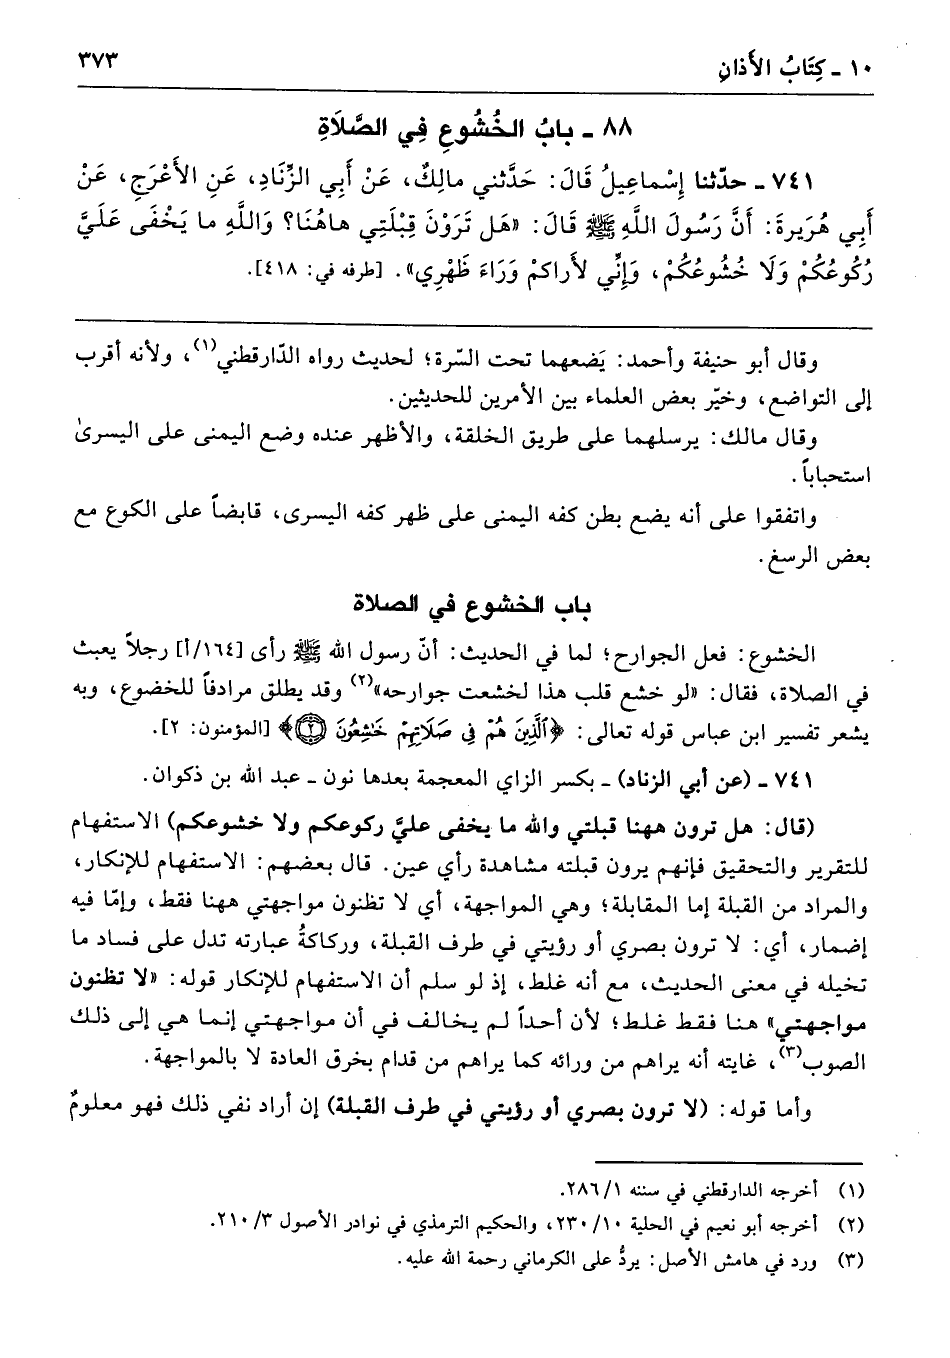 ١٠ ـ كِتَابُ الأَذانِ ٣٧٣
٨٨ ـ بابُ الخُشُوعِ فِي الصَّلَاةِ
٧٤١ ـ حدّثنا إِسْماعِيلُ قَالَ: حَدَّثني مالِكٌ، عَنْ أَبِي الزِّنَادِ، عَنِ الأَعْرَجِ، عَنْ
أَبِي هُرَيرةَ: أَنَّ رَسُولَ اللَّهِ ﷺ قَالَ: «هَل تَرَوْنَ قِبْلَتِي هاهُنَا؟ وَاللَّهِ ما يَخْفَى عَلَيَّ
رُكُوعُكُمْ وَلَا خُشُوعُكُمْ، وَإِنِّي لأَراكمْ وَرَاءَ ظَهْرِي». [طرفه في: ٤١٨].
وقال أبو حنيفة وأحمد: يَضعهما تحت السّرة؛ لحديث رواه الدّارقطني(١)، ولأنه أقرب
إلى التواضع، وخيّر بعض العلماء بين الأمرين للحديثين.
وقال مالك: يرسلهما على طريق الخلقة، والأظهر عنده وضع اليمنى على اليسرىٰ
استحباباً.
واتفقوا على أنه يضع بطن كفه اليمنى على ظهر كفه اليسرى، قابضاً على الكوع مع
بعض الرسغ.
باب الخشوع في الصلاة
الخشوع: فعل الجوارح؛ لما في الحديث: أنّ رسول الله ﷺ رأى [١٦٤/أ] رجلاً يعبث
في الصلاة، فقال: «لو خشع قلب هذا لخشعت جوارحه»(٢) وقد يطلق مرادفاً للخضوع، وبه
يشعر تفسير ابن عباس قوله تعالى: ﴿ٱلَّذِينَ هُمْ فِى صَلَاتِهِمْ خَٰشِعُونَ ٢﴾ [المؤمنون: ٢].
٧٤١ ـ (عن أبي الزناد) ـ بكسر الزاي المعجمة بعدها نون ـ عبد الله بن ذكوان.
(قال: هل ترون ههنا قبلتي والله ما يخفى عليَّ ركوعكم ولا خشوعكم) الاستفهام
للتقرير والتحقيق فإنهم يرون قبلته مشاهدة رأي عين. قال بعضهم: الاستفهام للإنكار،
والمراد من القبلة إما المقابلة؛ وهي المواجهة، أي لا تظنون مواجهتي ههنا فقط، وإمّا فيه
إضمار، أي: لا ترون بصري أو رؤيتي في طرف القبلة، وركاكةُ عبارته تدل على فساد ما
تخيله في معنى الحديث، مع أنه غلط، إذ لو سلم أن الاستفهام للإنكار قوله: «لا تظنون
مواجهتي» هنا فقط غلط؛ لأن أحداً لم يخالف في أن مواجهتي إنما هي إلى ذلك
الصوب(٣)، غايته أنه يراهم من ورائه كما يراهم من قدام بخرق العادة لا بالمواجهة.
وأما قوله: (لا ترون بصري أو رؤيتي في طرف القبلة) إن أراد نفي ذلك فهو معلومٌ
(١) أخرجه الدارقطني في سننه ٢٨٦/١.
(٢) أخرجه أبو نعيم في الحلية ٢٣٠/١٠، والحكيم الترمذي في نوادر الأصول ٢١٠/٣.
(٣) ورد في هامش الأصل: يردُّ على الكرماني رحمة الله عليه.